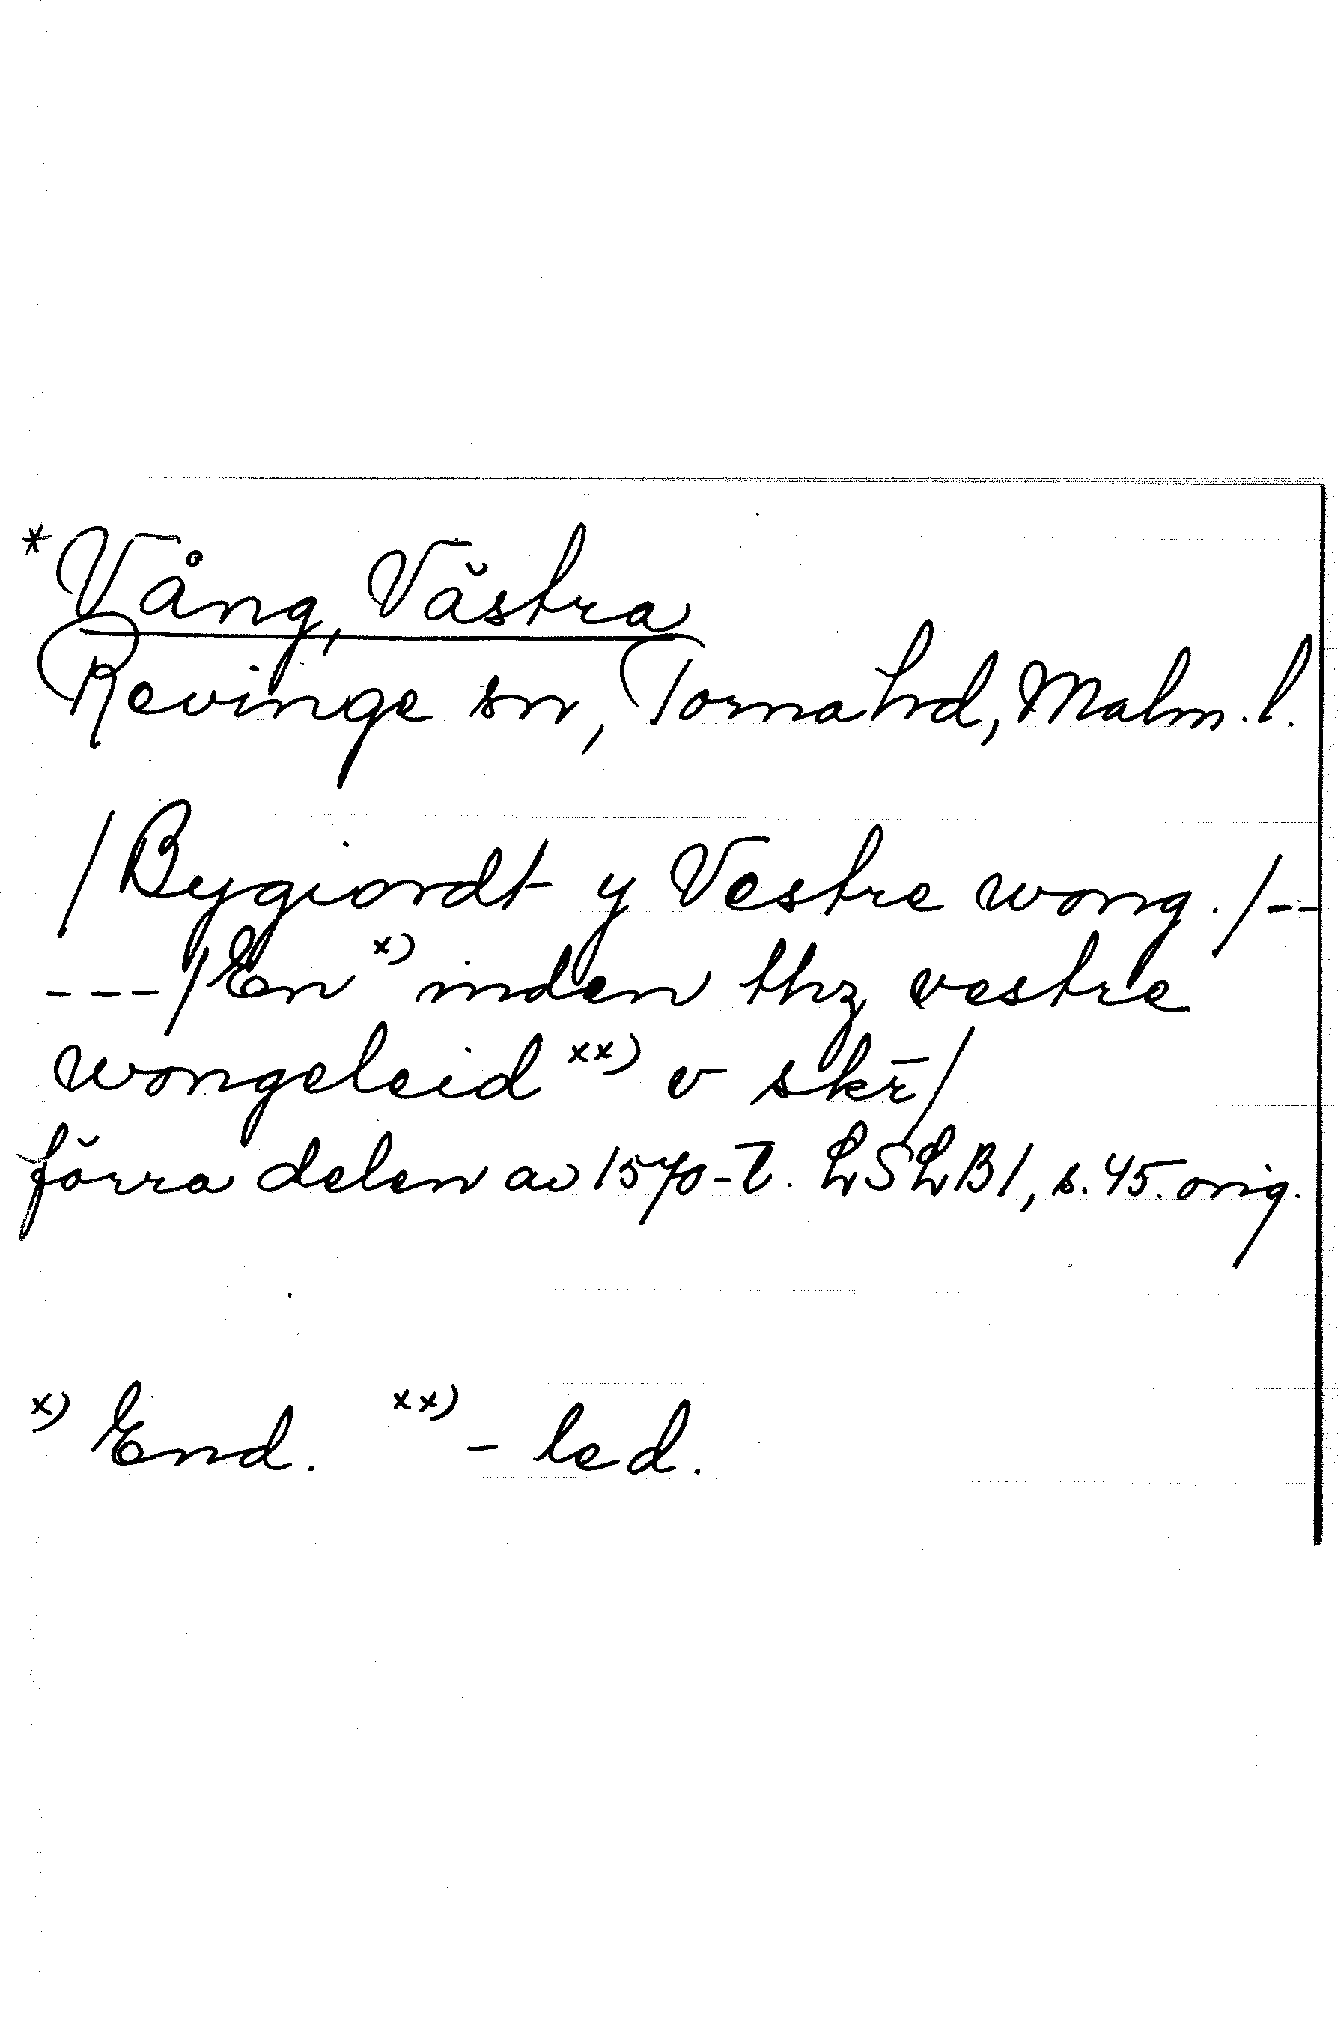 *Vång, Västra
Revinge sn, Torna hd, Malm. l.
/Bygiordt y Vestre wong. /--
---/En x) inden thz vestre
wongeleid xx) v skr̄/
förra delen av 1570-t. LSLB1, s. 45. orig.
x) End. xx) - led.